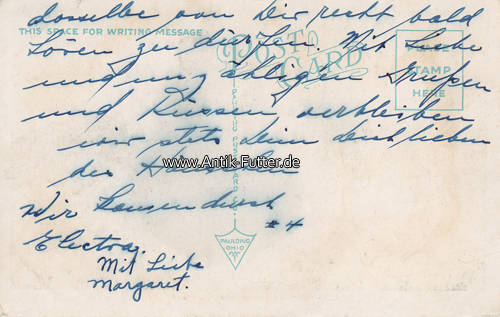 dasselbe von Dir recht bald
THIS SPACE FOR WRITING MESSAGE
hören zu dürfen. Mit Liebe
POST CARD
PLACE STAMP HERE
und unzähligen Grüßen
und Küssen, verbleiben
wir stets dein dich lieben
www.Antik-Futter.de
Wir
Electra.
PAULDING OHIO
Mit Liebe
Margaret.